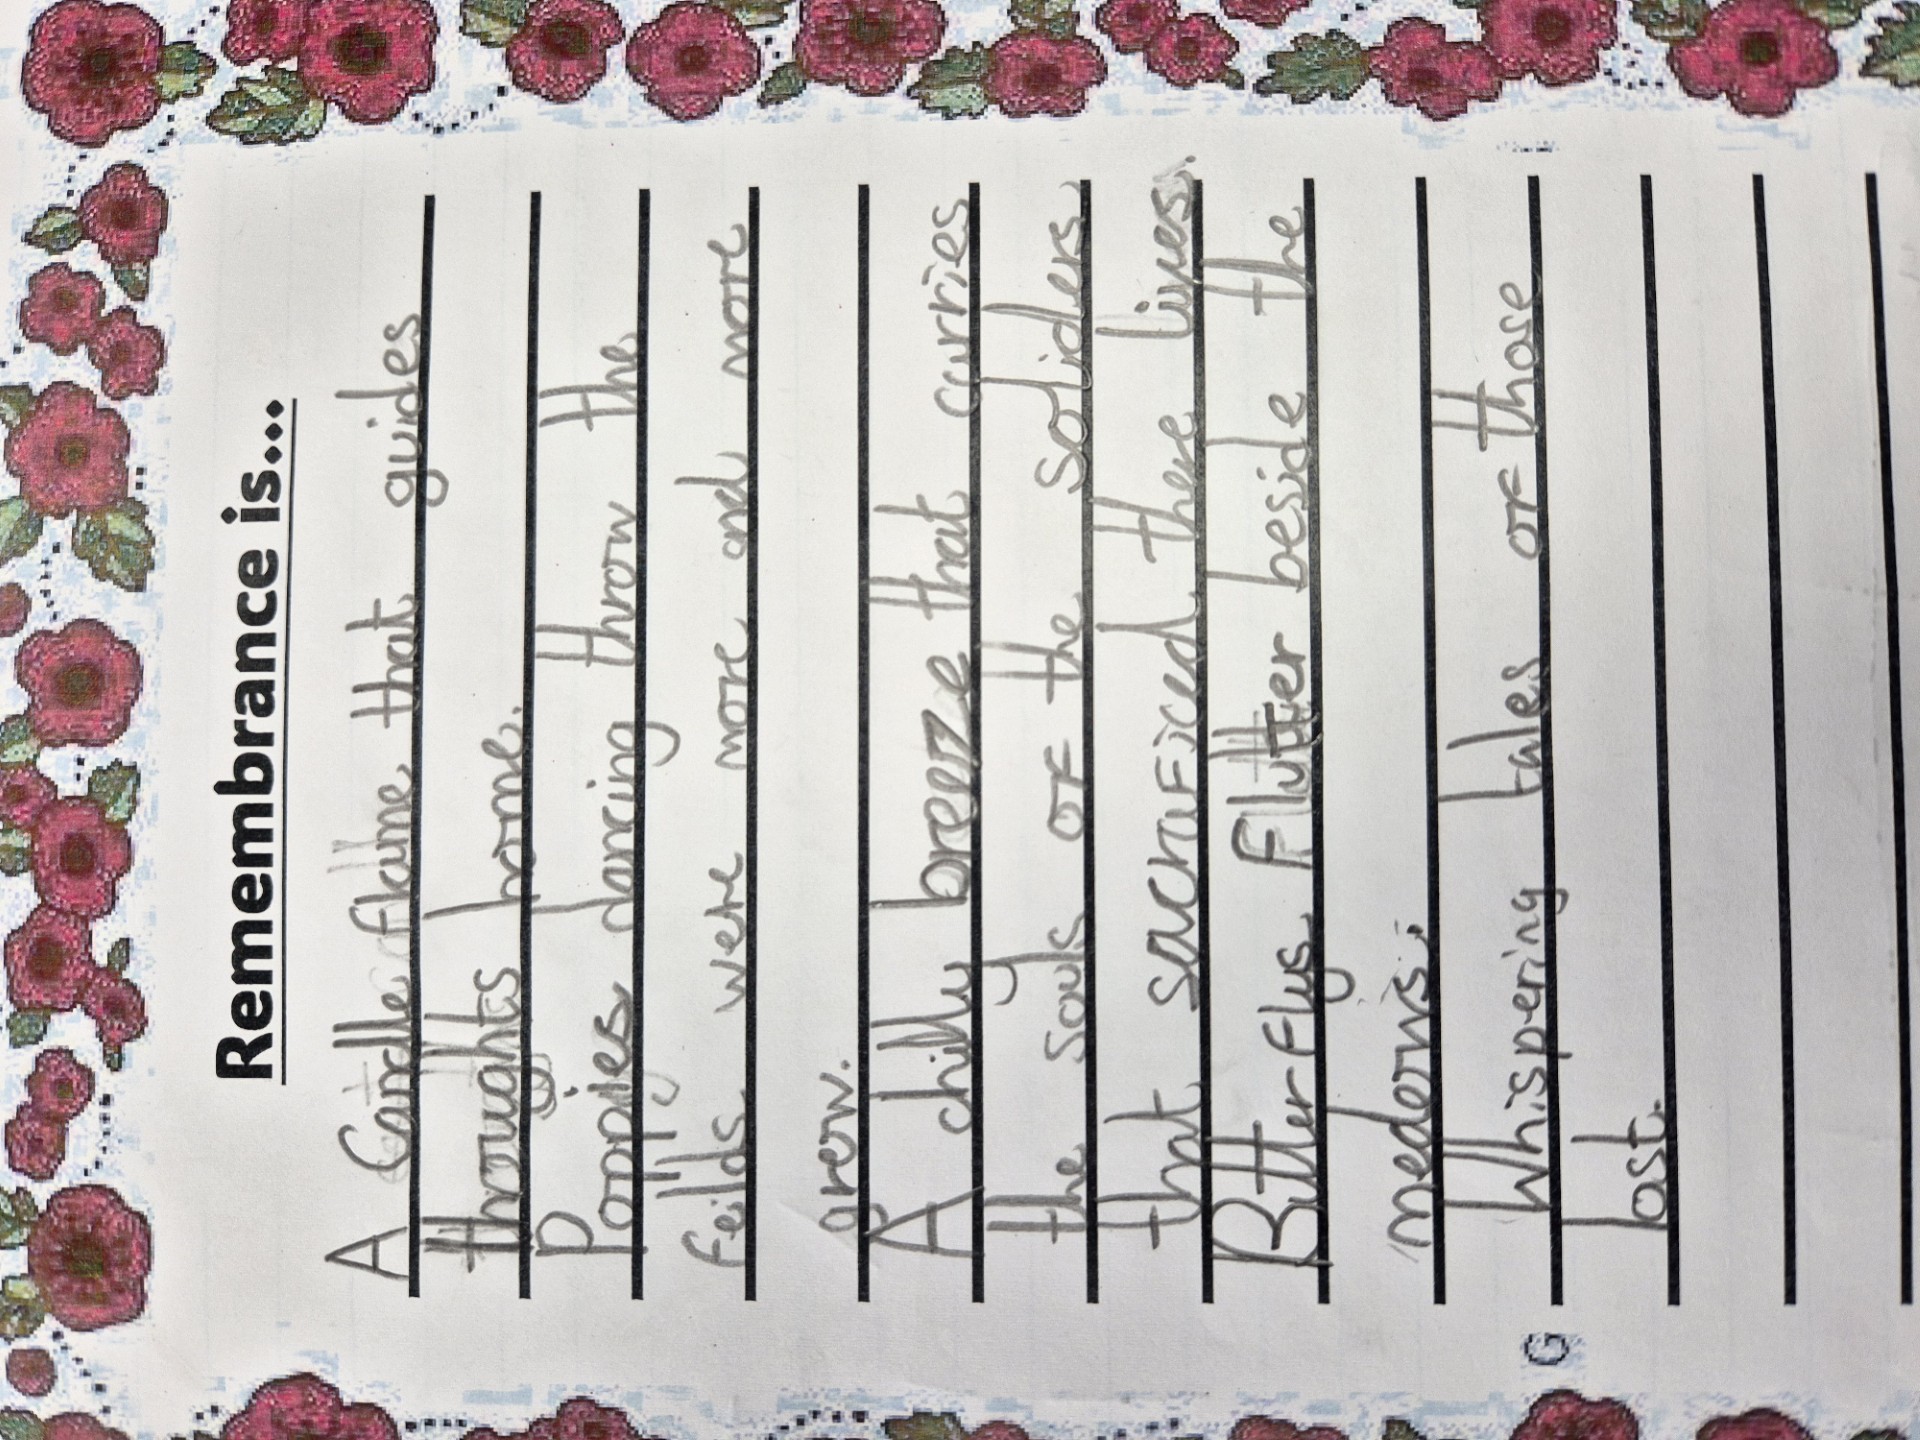 Remembrance is...
A Candle flame that guides
thoughts home.
Poppies dancing throw the
feilds were more and more
grow.
A chilly breeze that carries
the souls of the soliders
that sacraficed there lives.
Butterflys flutter beside the
medows.
Whispering tales of those
lost.